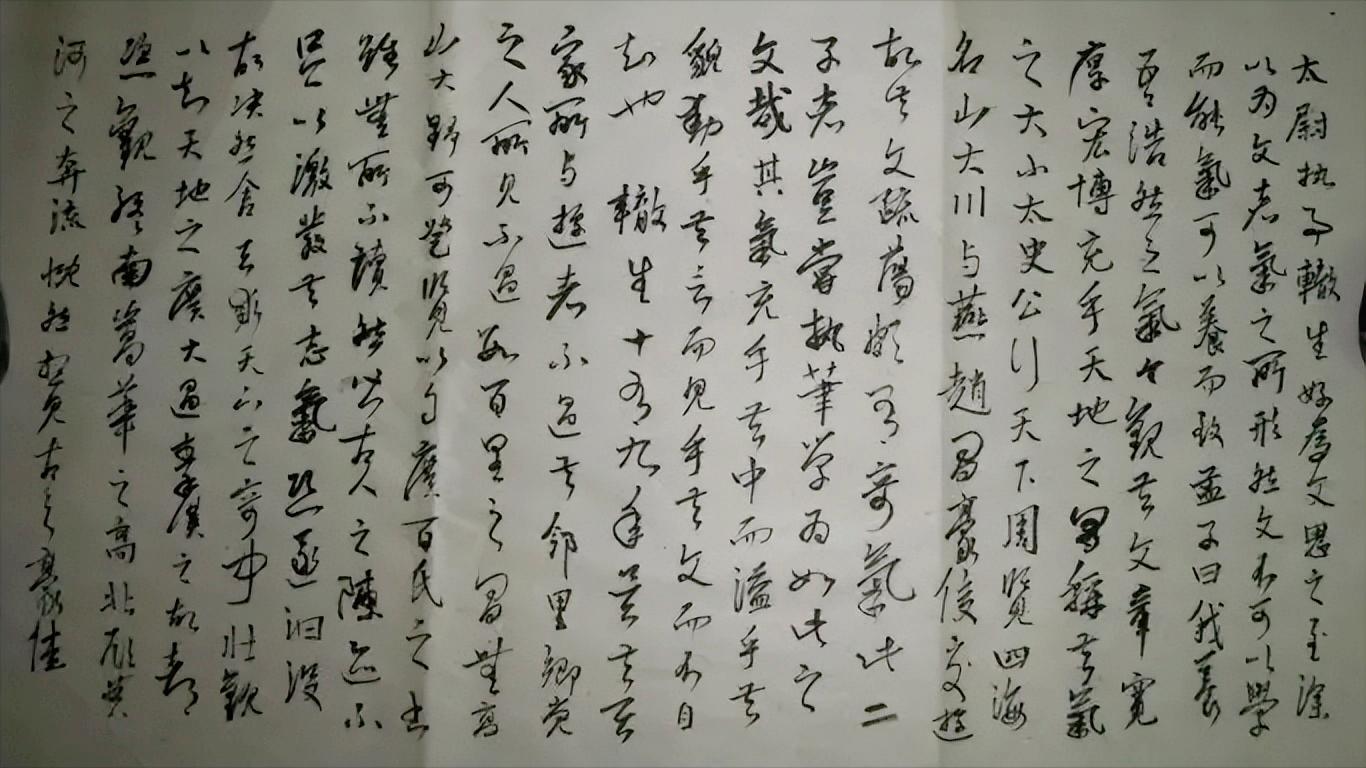 太尉执事辙生好为文思之至深
以为文者氣之所形然文不可以學
而能氣可以養而致孟子曰我善養
吾浩然之氣今觀其文章寬
厚宏博充乎天地之間稱其氣
之大小太史公行天下周览四海
名山大川与燕趙间豪俊交遊
故其文疏蕩頗有奇氣此二
子者豈嘗执筆学为如此之
文哉其氣充乎其中而溢乎其
貌動乎其言而见乎其文而不自
知也 辙生十有九年矣其居
家所与遊者不過其邻里鄉党
之人所见不過数百里之间無高
山大野可登览以自廣百氏之书
雖無所不讀然皆古人之陳迹不
足以激發其志氣恐遂汩没
故决然舍去求天下之奇闻壮觀
以知天地之廣大過秦漢之故都
恣觀終南嵩華之高北顾黄
河之奔流慨然想见古之豪傑